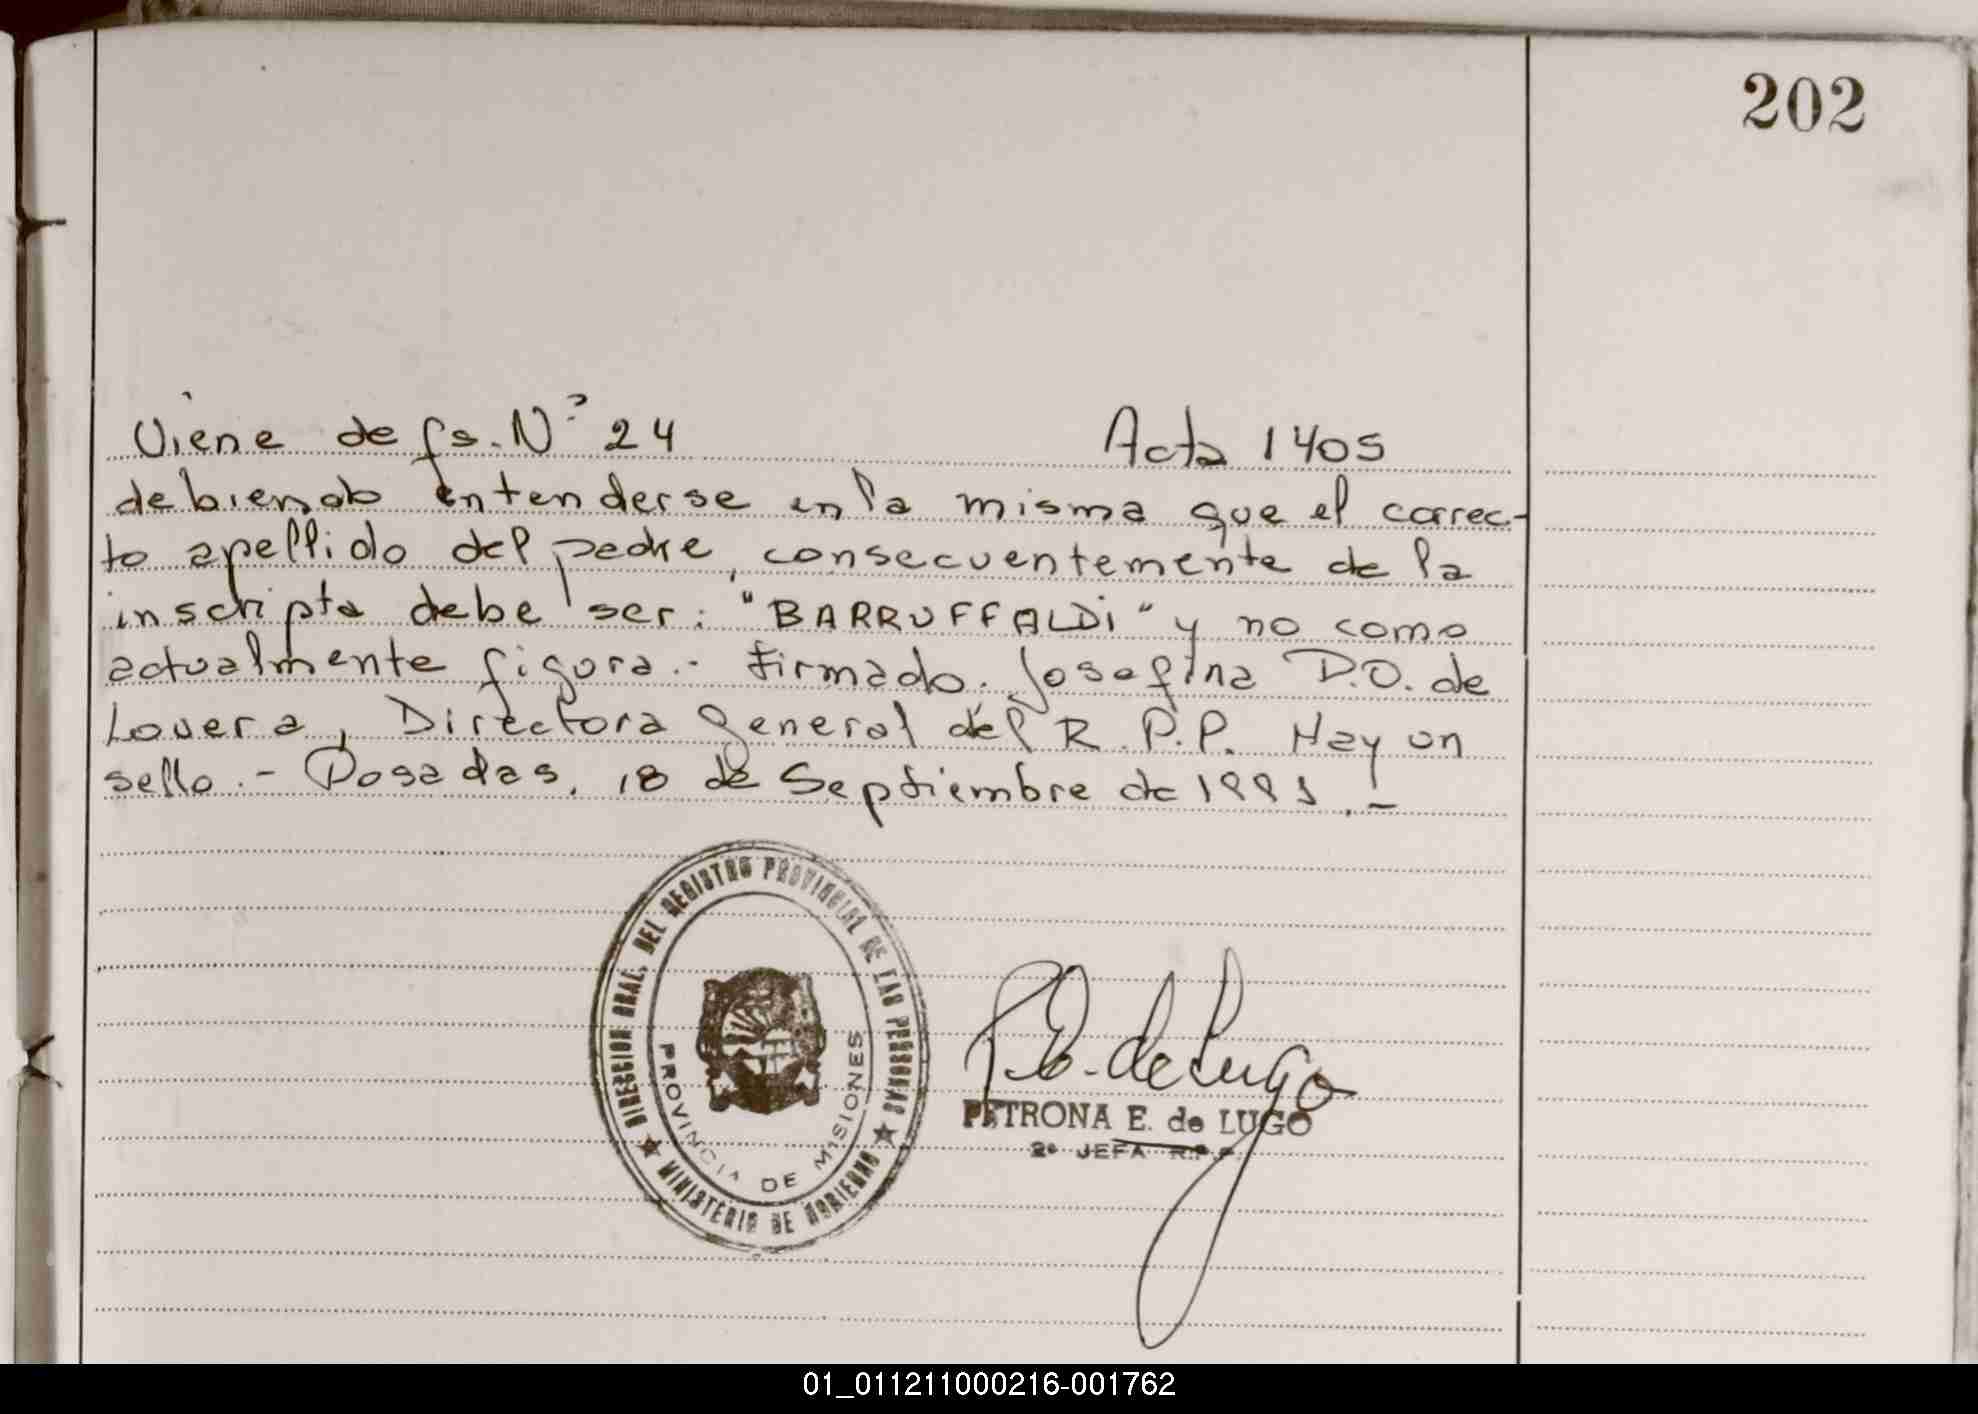 202
Viene de fs. Nº 24 Acta 1405
debiendo entenderse en la misma que el correc-
to apellido del padre, consecuentemente de la
inscripta debe ser: "BARRUFFALDi" y no como
actualmente figura.- Firmado. Josefina D.O. de
Lovera, Directora General del R.P.P. Hay un
sello.- Posadas, 18 de Septiembre de 1991.-
DIRECCION GRAL. DEL REGISTRO PROVINCIAL DE LAS PERSONAS
PROVINCIA DE MISIONES
MINISTERIO DE GOBIERNO
P.E. de Lugo
PETRONA E. de LUGO
2º JEFA R.P.P.
01_011211000216-001762